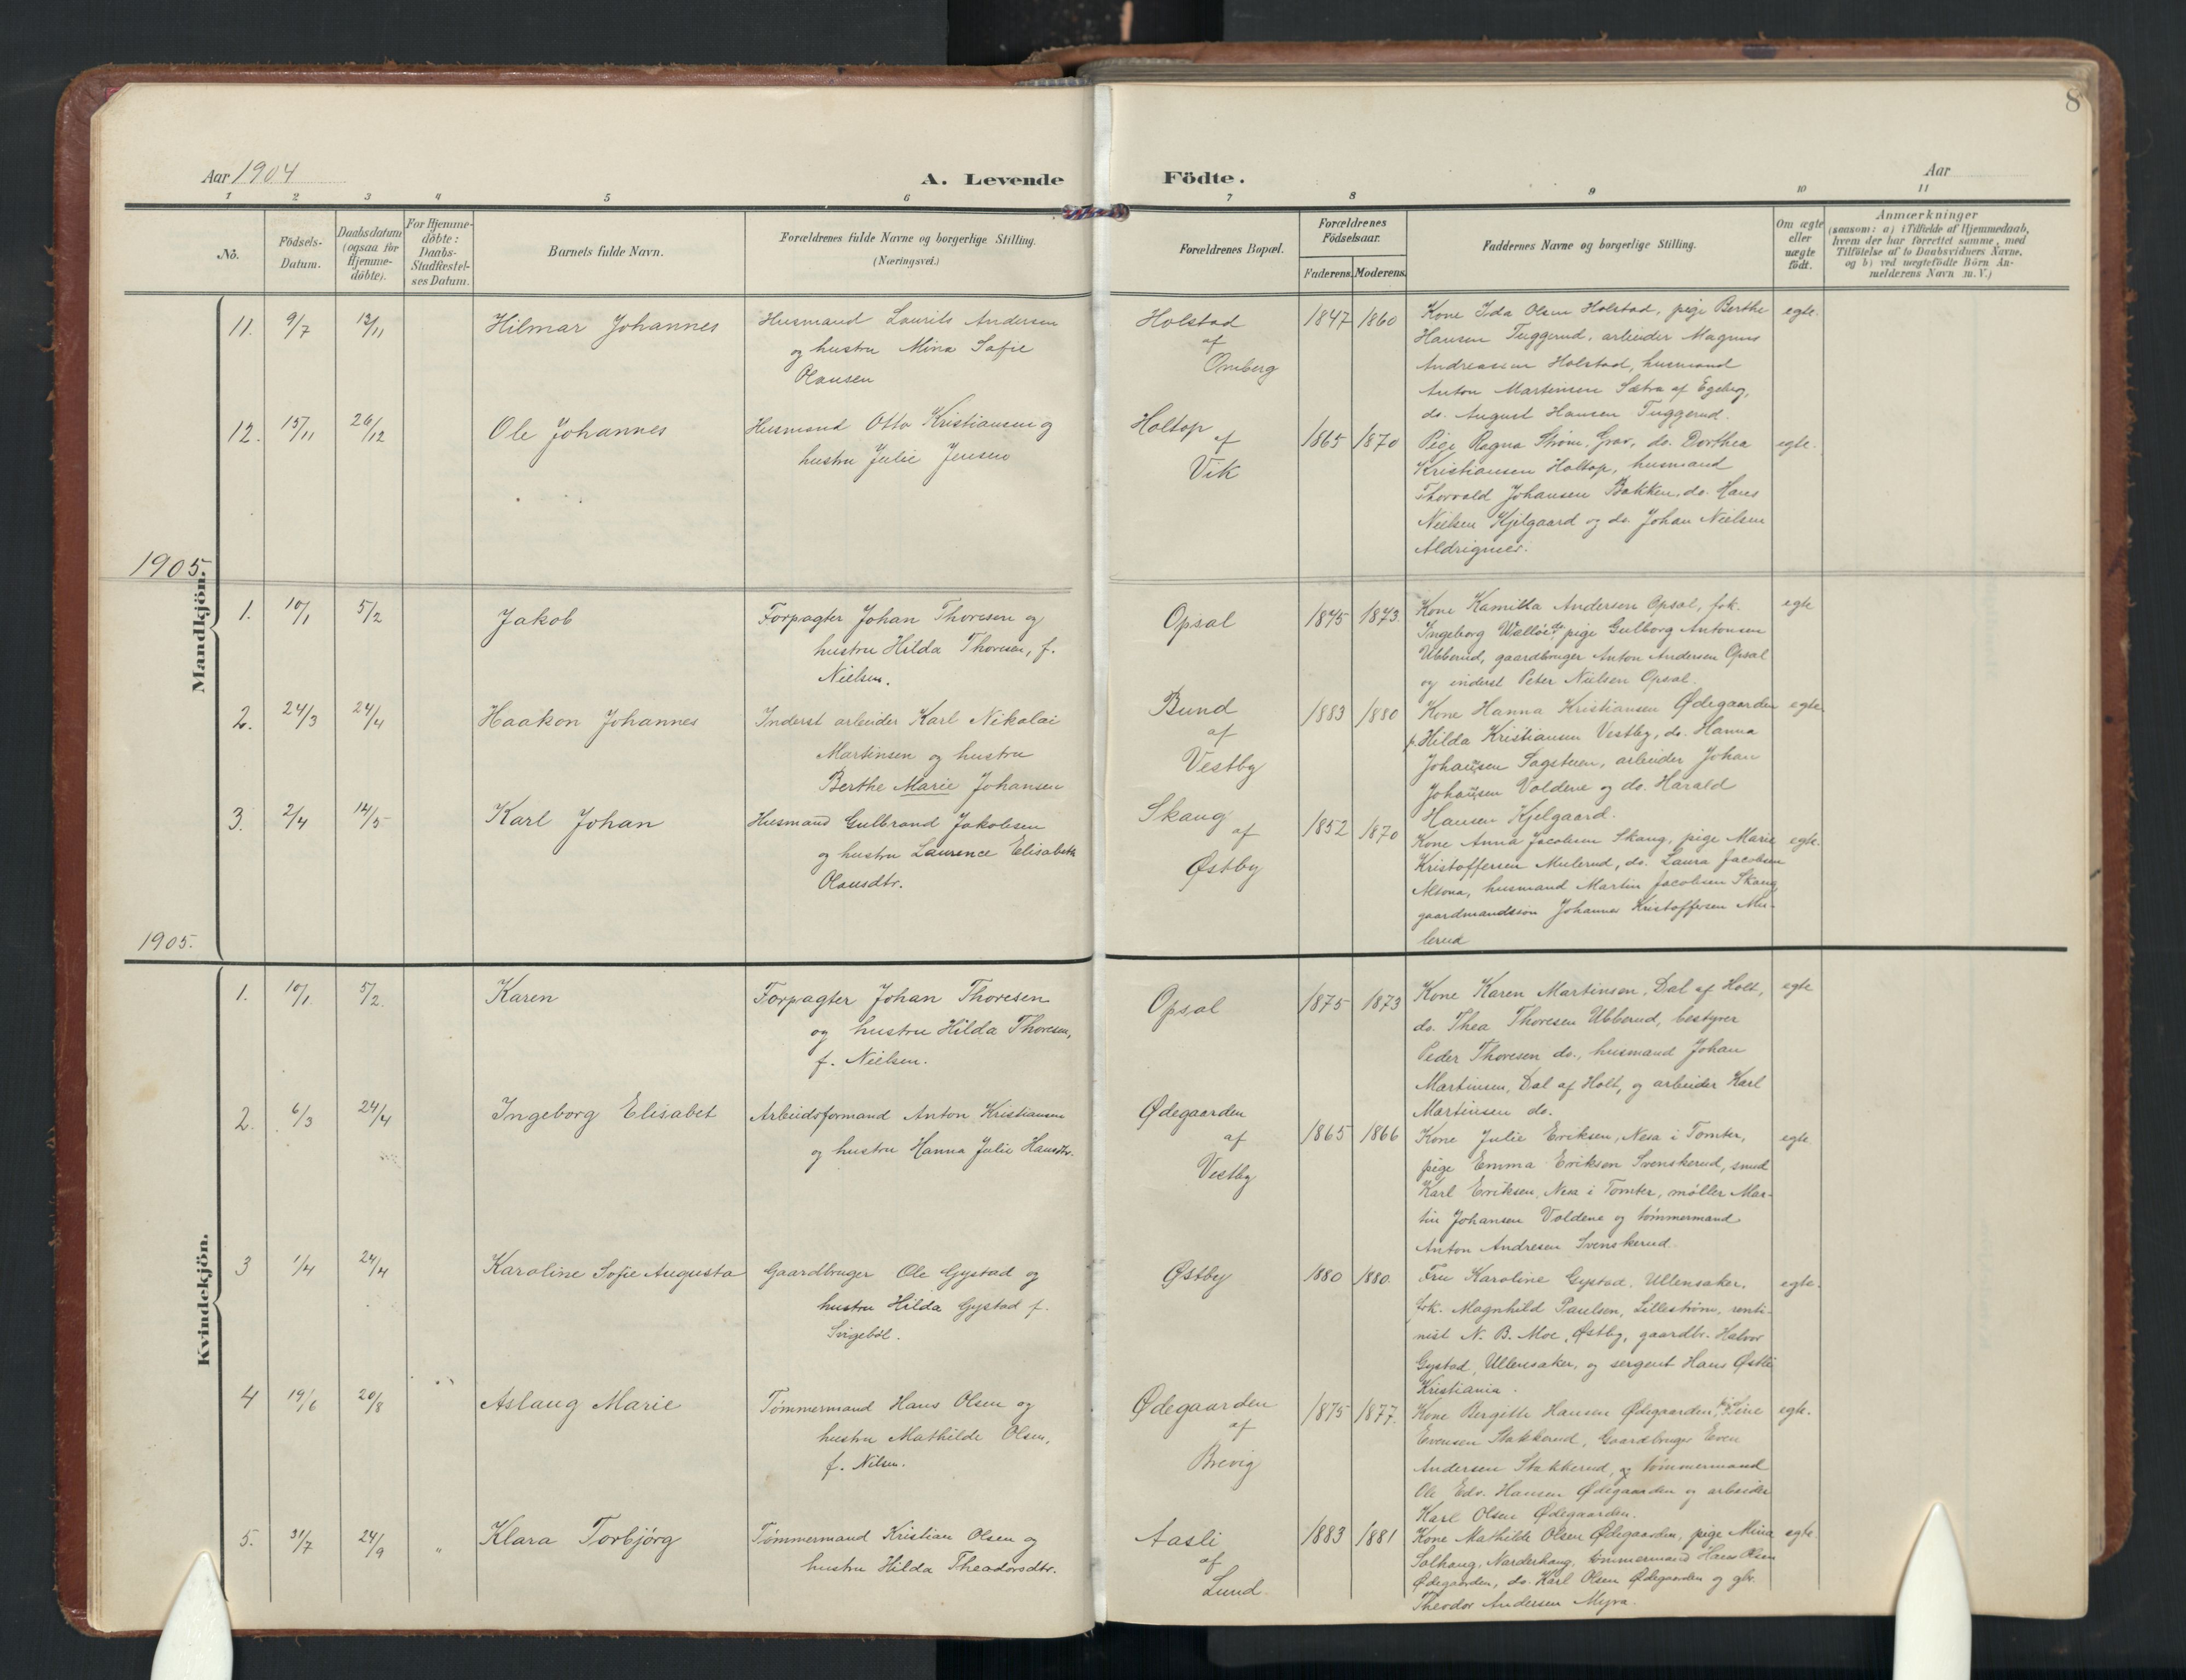 8
Aar 1904
A. Levende
Födte.
Aar
1 2 3 4 5 6 7 8 9 10 11
No.
Födsels-
Datum.
Daabsdatum
(ogsaa for
Hjemme-
döbte).
For Hjemme-
döbte:
Daabs-
Stadfæstel-
ses Datum.
Barnets fulde Navn.
Forældrenes fulde Navne og borgerlige Stilling.
(Næringsvei.)
Forældrenes Bopæl.
Forældrenes
Födselsaar.
Faderens. Moderens.
Faddernes Navne og borgerlige Stilling.
Om ægte
eller
uægte
födt.
Anmærkninger
(saasom: a) i Tilfælde af Hjemmedaab,
hvem der har forrettet samme, med
Tilföielse af to Daabsvidners Navne,
og b) ved uægtefödte Börn An-
melderens Navn m. V.)
Mandkjön.
11. 9/7 13/11 Hilmar Johannes
Husmand Laurits Andersen
og hustru Mina Sofie
Olausen
Holstad
af
Omberg
1847 1860
Kone Ida Olsen Holstad, pige Berthe
Hansen Tuggerud, arbeider Magnus
Andreassen Holstad, husmand
Anton Martinsen Sætra af Egeberg,
do. August Hansen Tuggerud.
egte.
12. 15/11 26/12 Ole Johannes
Husmand Otto Kristiansen og
hustru Julie Jensen
Holtop
af
Vik
1865 1870
Pige Ragna Strøm, Grav, do. Dorthea
Kristiansen Holtop, husmand
Thorvald Johansen Bakken, do. Hans
Nielsen Kjelgaard og do. Johan Nielsen
Aldrigmer.
egte.
1905.
1. 10/1 5/2 Jakob
Forpagter Johan Thoresen og
hustru Hilda Thoresen, f.
Nielsen.
Opsal
1875 1873.
Kone Kamilla Andersen Opsal, frk.
Ingeborg Walløe do. pige Gulborg Antonsen
Ubberud, gaardbruger Anton Andersen Opsal
og inderst Peter Nielsen Opsal.
egte
2. 24/3 24/4 Haakon Johannes
Inderst arbeider Karl Nikolai
Martinsen og hustru
Berthe Marie Johansen
Bund
af
Vestby
1883 1880
Kone Hanna Kristiansen Ødegaarden
p. Hilda Kristiansen Vestby, do. Hanna
Johansen Sagstuen, arbeider Johan
Johansen Voldene og do. Harald
Hansen Kjelgaard.
egte.
3. 2/4 14/5 Karl Johan
Husmand Gulbrand Jakobsen
og hustru Laurence Elisabeth
Olausdtr.
Skaug
af
Østby
1852 1870
Kone Anna Jacobsen Skaug, pige Marie
Kristoffersen Mulerud, do. Laura Jacobsen
Altona, husmand Martin Jacobsen Skaug,
gaardmandssön Johannes Kristoffersen Mu-
lerud
egte.
1905.
Kvindekjön.
1. 10/1. 5/2. Karen
Forpagter Johan Thoresen
og hustru Hilda Thoresen,
f. Nielsen.
Opsal
1875 1873
Kone Karen Martinsen, Dal af Holt,
do. Thea Thoresen Ubberud, bestyrer
Peder Thoresen do., husmand Johan
Martinsen, Dal af Holt, og arbeider Karl
Martinsen do.
egte
2. 6/3 24/4 Ingeborg Elisabet
Arbeidsformand Anton Kristiansen
og hustru Hanna Julie Hansdtr.
Ødegaarden
af
Vestby
1865 1866
Kone Julie Eriksen, Nesa i Tomter,
pige Emma Eriksen Svenskerud, smed
Karl Eriksen, Nesa i Tomter, møller Mar-
tin Johansen Voldene og tømmermand
Anton Andresen Svenskerud.
egte
3 1/4 24/4 Karoline Sofie Augusta
Gaardbruger Ole Gystad og
hustru Hilda Gystad f.
Svigeböl.
Østby
1880 1880.
Fru Karoline Gystad, Ullensaker,
frk. Magnhild Paulsen, Lilleström, renti-
nist N. B. Moe, Østby, gaardbr. Halvor
Gystad, Ullensaker, og sergent Hans Østli
Kristiania.
egte.
4 19/6 20/8 Aslaug Marie
Tömmermand Hans Olsen og
hustru Mathilde Olsen,
f. Nilsen.
Ødegaarden
af
Brevig
1875 1877.
Kone Bergitte Hansen Ødegaarden, pige Line
Evensen Stakkerud, Gaardbruger Even
Andersen Stakkerud, og tömmermand
Ole Edv. Hansen Ødegaarden og arbeider
Karl Olsen Ødegaarden.
egte.
5. 31/7 24/9 " Klara Torbjörg
Tömmermand Kristian Olsen og
hustru Hilda Theodorsdtr.
Aasli
af
Lund.
1883 1881
Kone Mathilde Olsen Ødegaarden, pige Mina
Solhaug, Narderhaug, tömmermand Hans Olsen
Ødegaarden, do. Karl Olsen Ødegaarden og gbr.
Theodor Andersen Myra.
egte